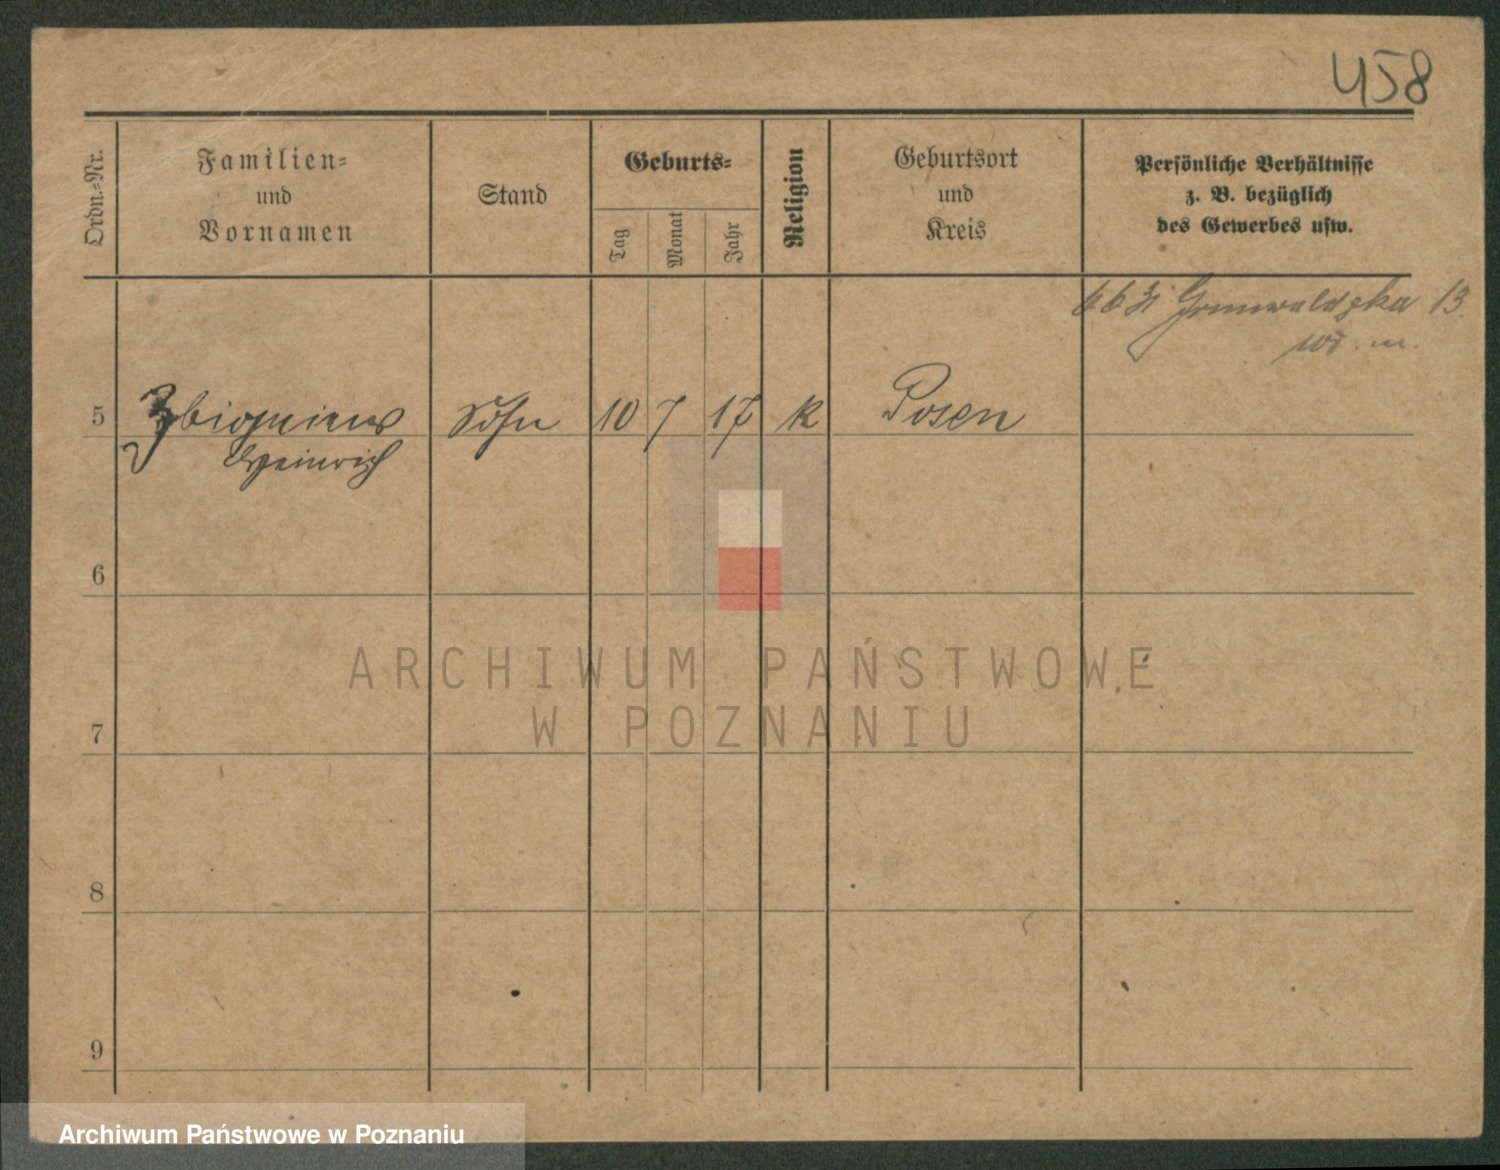 458
Ordn.-Nr.
Familien-
und
Vornamen
Stand
Geburts-
Tag
Monat
Jahr
Religion
Geburtsort
und
Kreis
Persönliche Verhältnisse
z. B. bezüglich
des Gewerbes usw.
Grunwaldzka 13.
5 Zbigniew Sohn 10 7 17 k Posen
Heinrich
6
7
8
9
ARCHIWUM PAŃSTWOWE
W POZNANIU
Archiwum Państwowe w Poznaniu